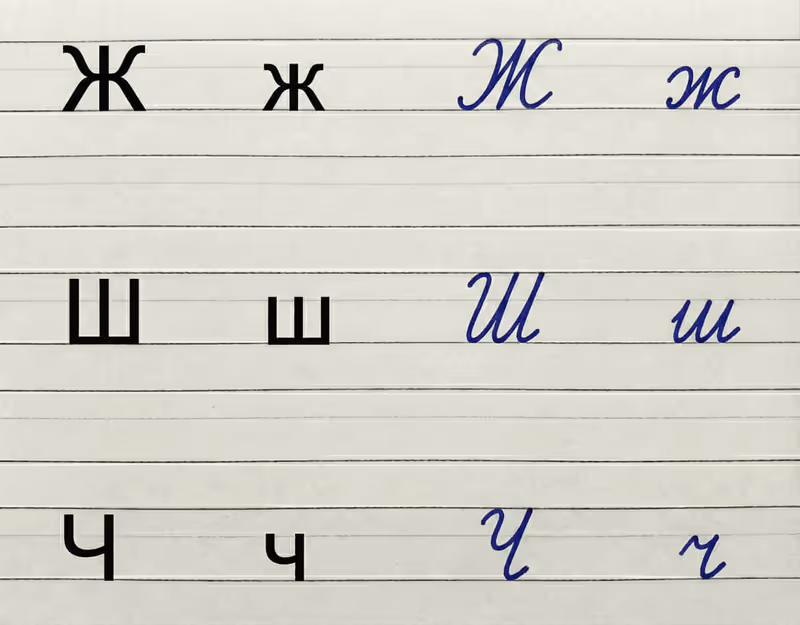 Ж ж Ж ж
Ш ш Ш ш
Ч ч Ч ч